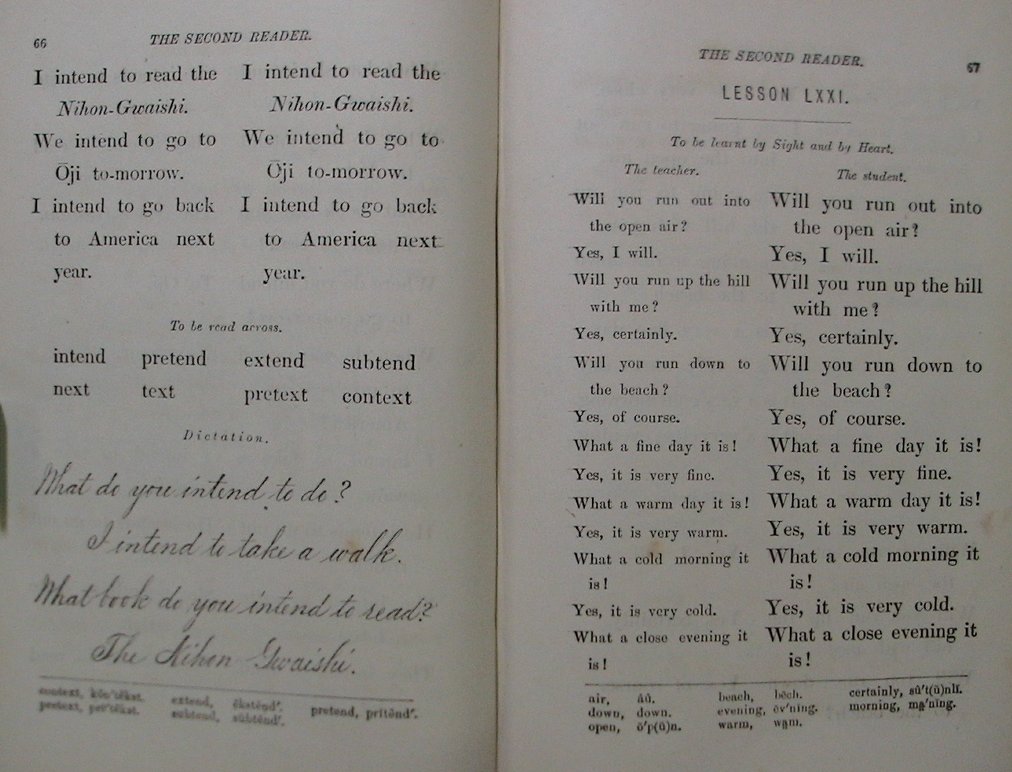 66
THE SECOND READER.
I intend to read the I intend to read the
Nihon-Gwaishi. Nihon-Gwaishi.
We intend to go to We intend to go to
Ōji to-morrow. Ōji to-morrow.
I intend to go back I intend to go back
to America next to America next
year. year.
To be read across.
intend pretend extend subtend
next text pretext context
Dictation.
What do you intend to do?
I intend to take a walk.
What book do you intend to read?
The Nihon Gwaishi.
context, extend, pretend,
pretext, subtend,
THE SECOND READER.
67
LESSON LXXI.
To be learnt by Sight and by Heart.
The teacher. The student.
Will you run out into Will you run out into
the open air? the open air?
Yes, I will. Yes, I will.
Will you run up the hill Will you run up the hill
with me? with me?
Yes, certainly. Yes, certainly.
Will you run down to Will you run down to
the beach? the beach?
Yes, of course. Yes, of course.
What a fine day it is! What a fine day it is!
Yes, it is very fine. Yes, it is very fine.
What a warm day it is! What a warm day it is!
Yes, it is very warm. Yes, it is very warm.
What a cold morning it What a cold morning it
is! is!
Yes, it is very cold. Yes, it is very cold.
What a close evening it What a close evening it
is! is!
air, beach, bēch. certainly, sû't(ü)nlĭ.
down, down. evening, ēv'nĭng. morning,
open, ō'p(ü)n. warm,